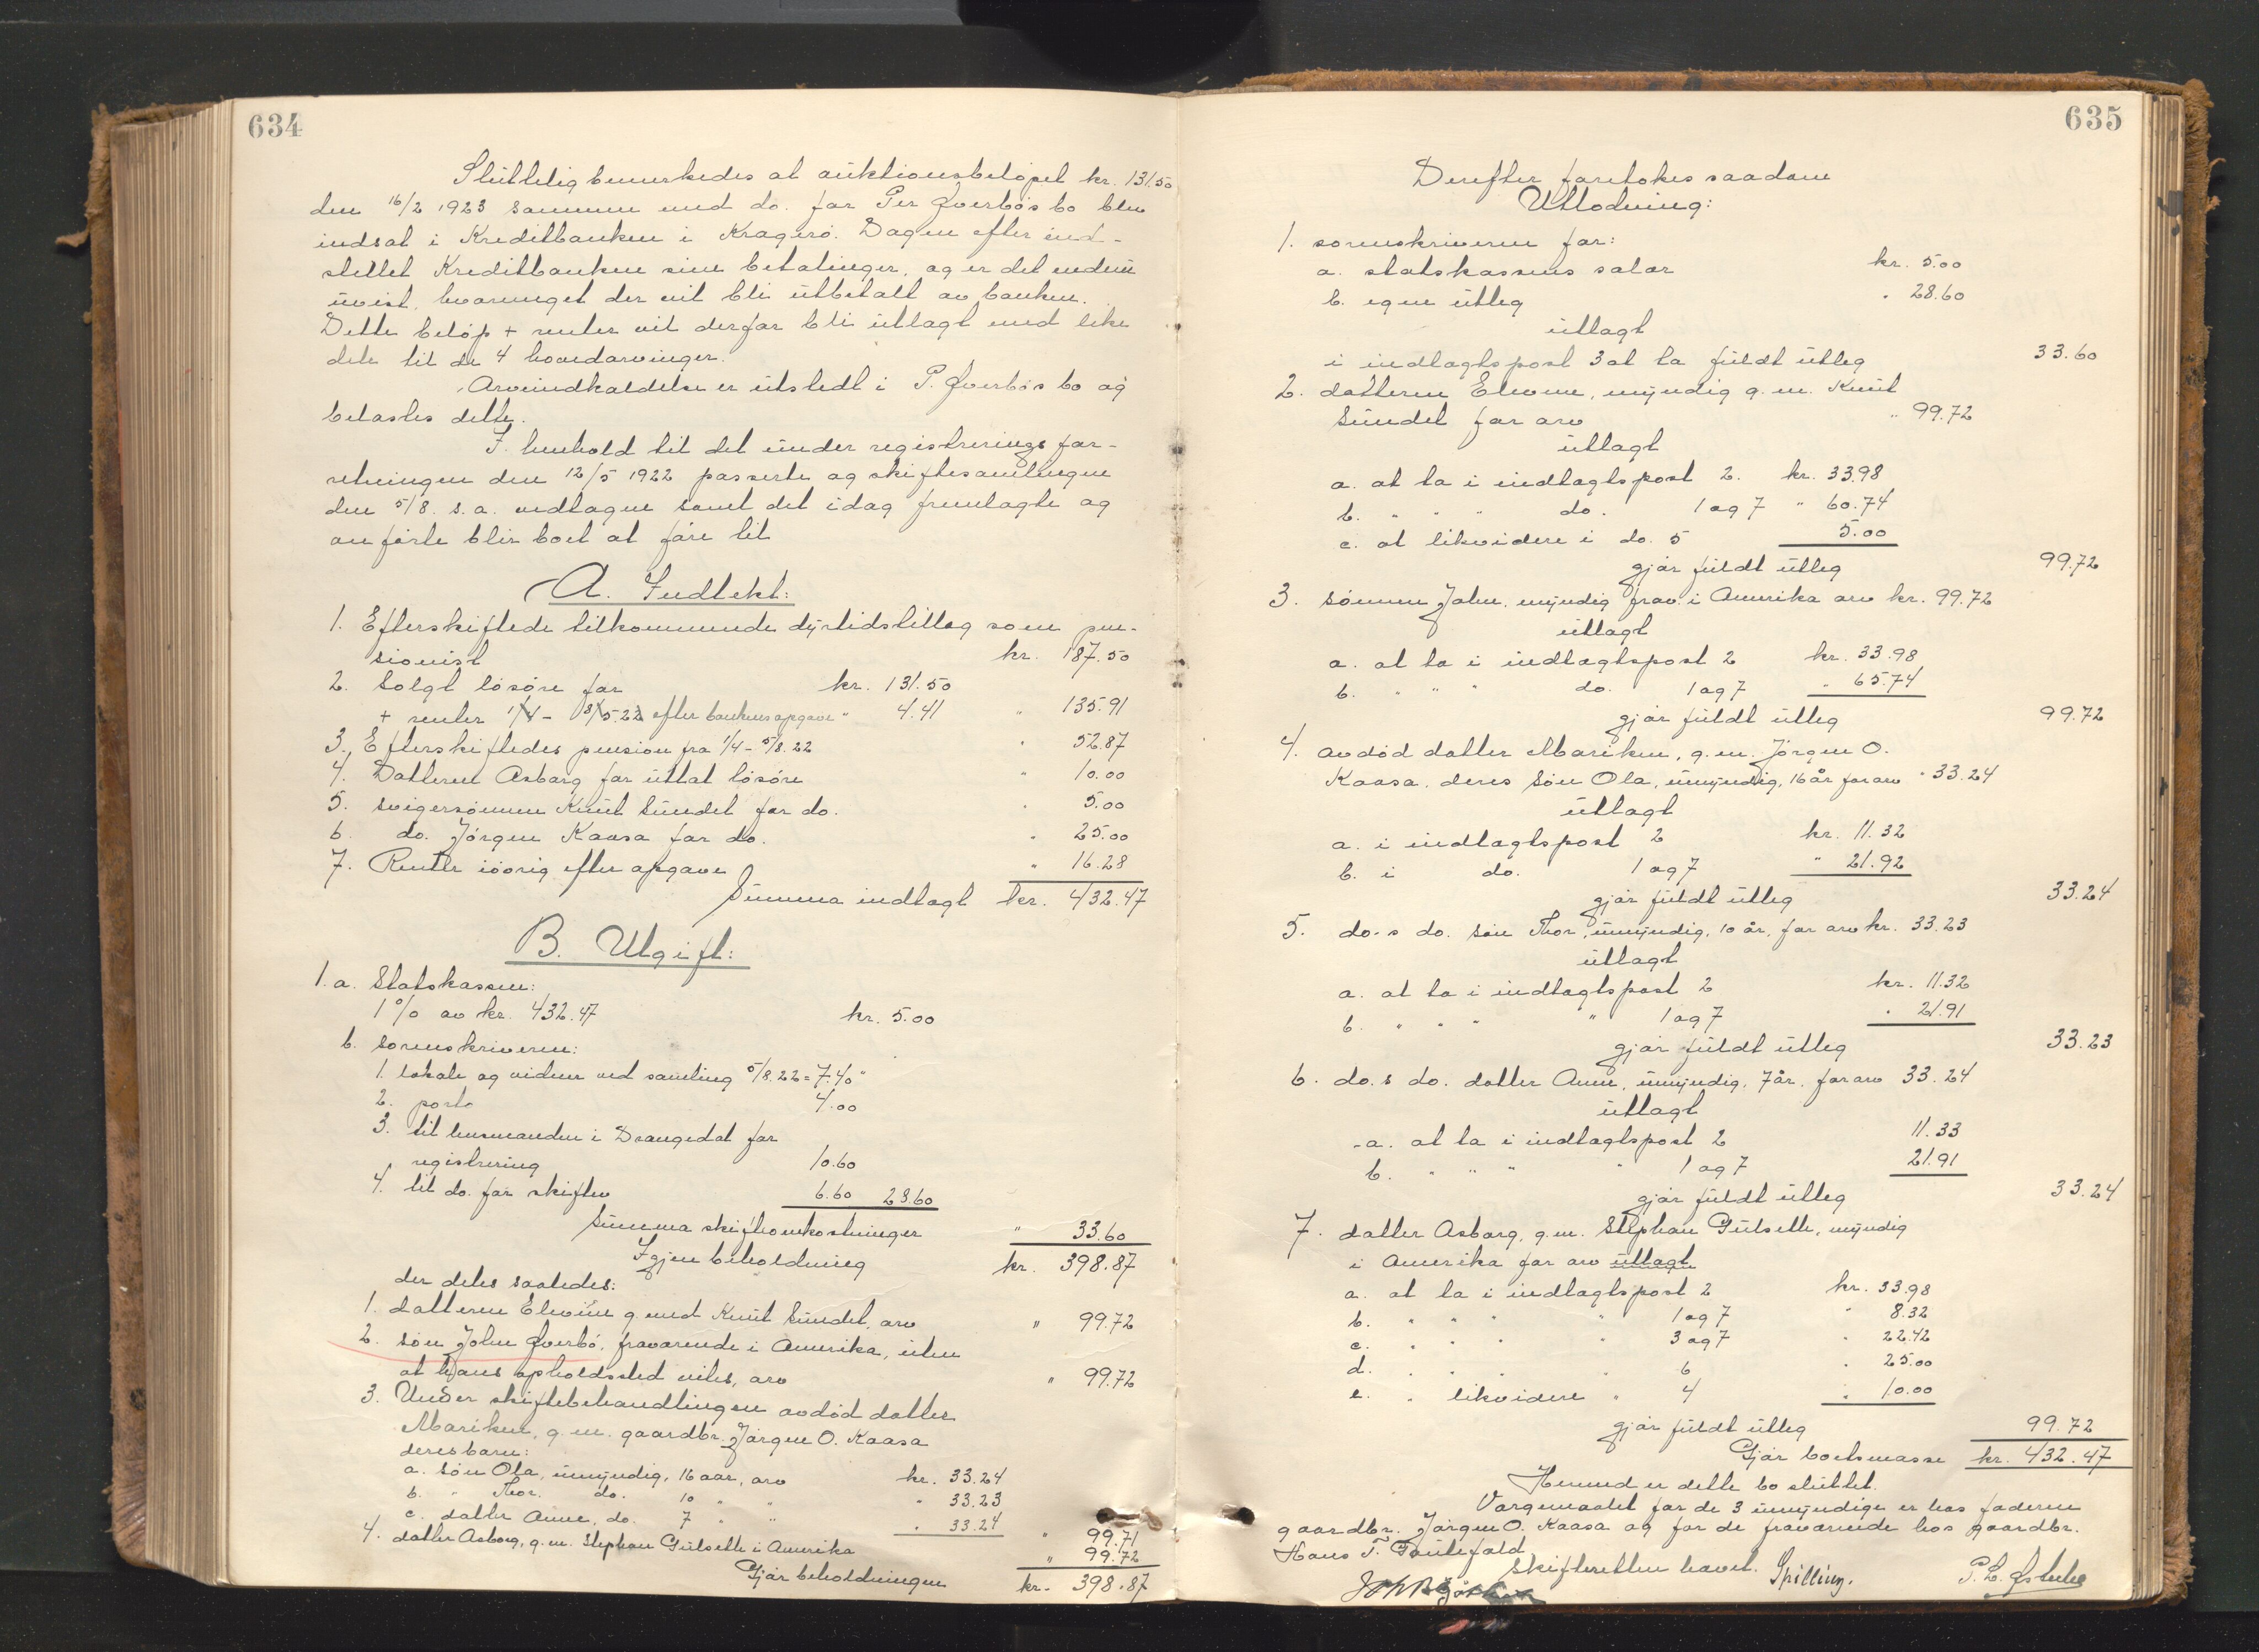 634
Sluttelig bemerkedes at auktionsbeløpet kr. 131.50
den 16/2 1923 sammen med do. for Per Øverbøs bo blev
indsat i Kreditbanken i Kragerø. Dagen efter ind-
stillet Kreditbanken sine betalinger, og er det endnu
uvist, hvormeget der vil bli utbetalt av banken.
Dette beløp + renter vil derfor bli utlagt med like
dele til de 4 hovedarvinger.
Arveindkaldelse er utstedt i P. Øverbøs bo og
belastes dette.
I henhold til det under registrerings for-
retningen den 12/5 1922 passerte og skiftesamlingen
den 5/8 s.a. vedtagne samt det idag fremlagte og
anførte blir boet at føre til
A. Indtekt:
1. Efterskiftede tilkommende dyrtidstillæg som pen-
sionist kr. 187.50
2. Solgt løsøre for kr. 131.50
+ renter 1/4 - 8/5.22 efter bankens opgave " 4.41 " 135.91
3. Efterskiftedes pension fra 1/4 - 5/8.22 " 52.87
4. Datteren Asborg for uttat løsøre " 10.00
5. svigersønnen Knut Sundet for do. " 5.00
6. do. Jørgen Kaasa for do. " 25.00
7. Renter iøvrig efter opgave " 16.28
Summa indtægt kr. 432.47
B. Utgift:
1.a. Statskassen:
1% av kr. 432.47 kr. 5.00
b. sorenskriveren:
1. lokale og vidner ved samling 5/8.22 = 7.40 "
2. porto 4.00
3. til lensmanden i Drangedal for
registrering 10.60
4. til do. for skiftev 6.60 28.60
Summa skifteomkostninger " 33.60
Igjen beholdning kr. 398.87
der deles saaledes:
1. datteren Elevine g. med Knut Sundet, arv " 99.72
2. søn John Øverbø, fraværende i Amerika, uten
at hans opholdssted vites, arv " 99.72
3. Under skiftebehandlingen avdød datter
Mariken, g.m. gaardbr. Jørgen O. Kaasa
deres barn:
a. søn Ola, umyndig, 16 aar, arv kr. 33.24
b. " Thor. do. 10 " " " 33.23
c. datter Anne, do. 7 " " " 33.24 " 99.71
4. datter Asborg, g.m. Stephan Gulseth i Amerika " 99.72
Gjør beholdningen kr. 398.87
635
Derefter foretokes saadan
Utlodning:
1. sorenskriveren for:
a. statskassens salær kr. 5.00
b. egne utleg " 28.60
utlagt
i indtægtspost 3 at ta fuldt utleg 33.60
2. datteren Elevine, myndig g.m. Knut
Sundet for arv " 99.72
utlagt
a. at ta i indtægtspost 2. kr. 33.98
b. " " " do. 1 og 7 " 60.74
c. at likvidere i do. 5 5.00
gjør fuldt utleg 99.72
3. sønnen John, myndig frav. i Amerika arv kr. 99.72
utlagt
a. at ta i indtægtspost 2 kr. 33.98
b. " " " do. 1 og 7 " 65.74
gjør fuldt utleg 99.72
4. avdød datter Mariken, g.m. Jørgen O.
Kaasa, deres søn Ola, umyndig, 16 år for arv " 33.24
utlagt
a. i indtægtspost 2 kr. 11.32
b. i do. 1 og 7 " 21.92
gjør fuldt utleg 33.24
5. do.s do. søn Thor, umyndig, 10 år, for arv kr. 33.23
utlagt
a. at ta i indtægtspost 2 kr. 11.32
b. " " " " 1 og 7 " 21.91
gjør fuldt utleg 33.23
6. do.s do. datter Anne, umyndig, 7 år, for arv 33.24
utlagt
a. at ta i indtægtspost 2 11.33
b. " " " " 1 og 7 21.91
gjør fuldt utleg 33.24
7. datter Asborg, g.m. Stephan Gulseth, myndig
i Amerika for arv utlagt
a. at ta i indtægtspost 2 kr. 33.98
b. " " " " 1 og 7 " 8.32
c. " " " " 3 og 7 " 22.42
d. " " " " 6 " 25.00
e. " likvidere " 4 " 10.00
gjør fuldt utleg 99.72
Gjør boetsmasse kr. 432.47
Hermed er dette bo sluttet.
Vergemaalet for de 3 umyndige er hos faderen
gaardbr. Jørgen O. Kaasa og for de fraværende hos gaardbr.
Hans T.
Skifteretten hævet. Spilling.